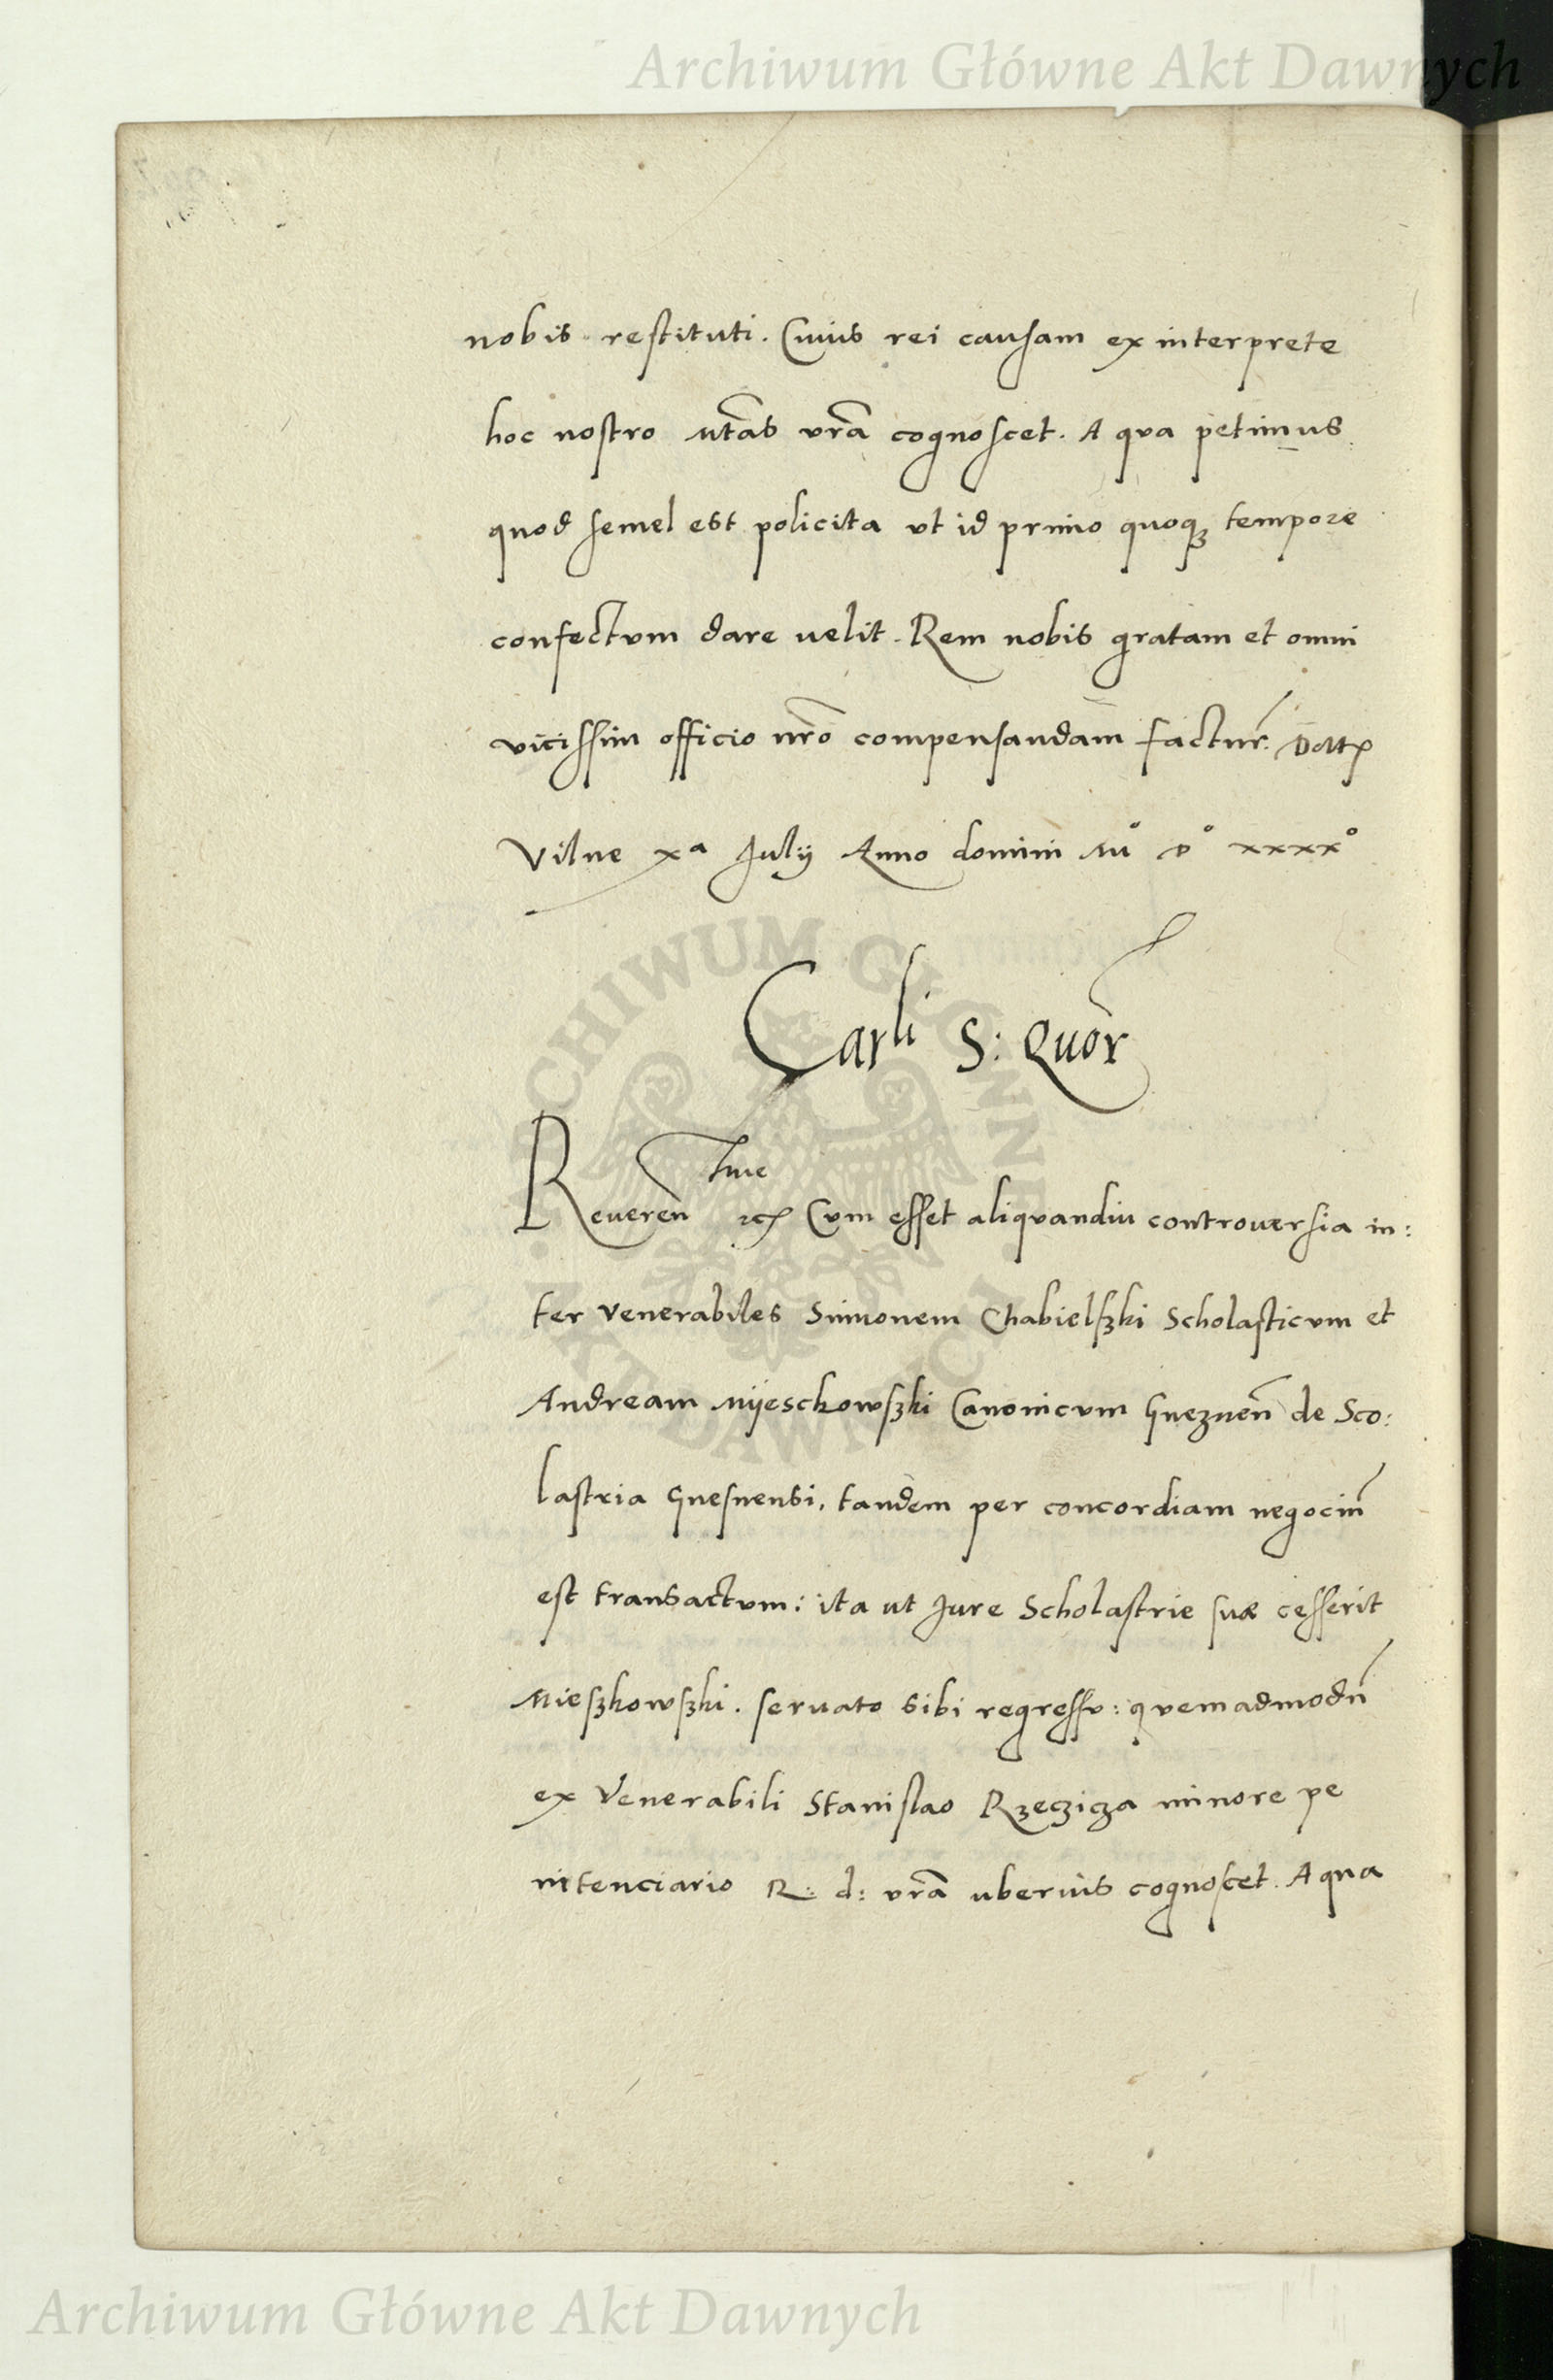 Archiwum Główne Akt Dawnych
nobis restituti. Cuius rei causam ex interprete
hoc nostro Mtas vra cognoscet. A qua petimus
quod semel est policita vt id primo quoqꝫ tempore
confectvm dare uelit. Rem nobis gratam et omni
vicissim officio nro compensandam factur. Datꝭ
Vilne xa Julij Anno domini Mo Do xxxxo
Carli S: Quor
Reueren tme etc Cvm esset aliqvandiu controuersia in:
ter venerabiles Simonem Chabielsʒki Scholasticvm et
Andream Mijeschowsʒki Canonicvm Gneʒnen de Sco:
lastria Gnesnensi, tandem per concordiam negociu
est transactvm: ita ut Jure Scholastrie suæ cesserit
Miesʒkowsʒki. seruato sibi regressv: qvemadmodu
ex Venerabili Stanislao Rʒecʒicʒa minore pe
nitenciario R: d: vra uberius cognoscet. A qua
Archiwum Główne Akt Dawnych